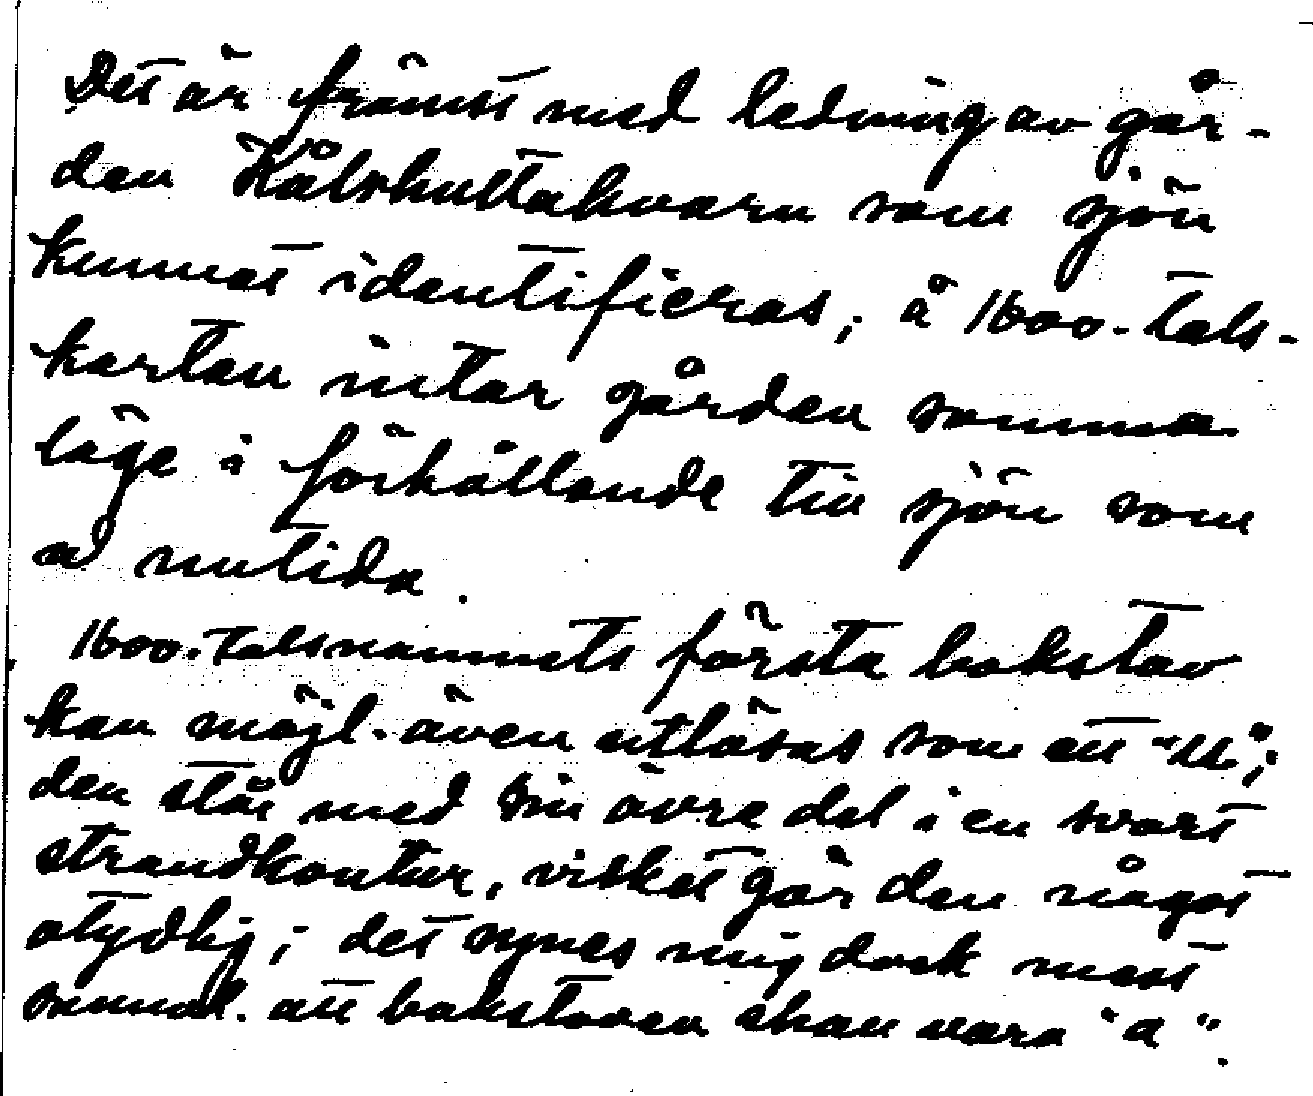 Det är främst med ledning av går-
den Hålshultakvarn som sjön
kunnat identifieras; å 1600-tals-
kartan intar gården samma
läge i förhållande till sjön som
å nutida.
1600-talsnamnets första bokstav
kan möjl. även utläsas som ett "u";
den står med sin övre del i en svart
strandkontur, vilket gör den något
otydlig; det synes mig dock mest
sannol. att bokstaven skall vara "a".